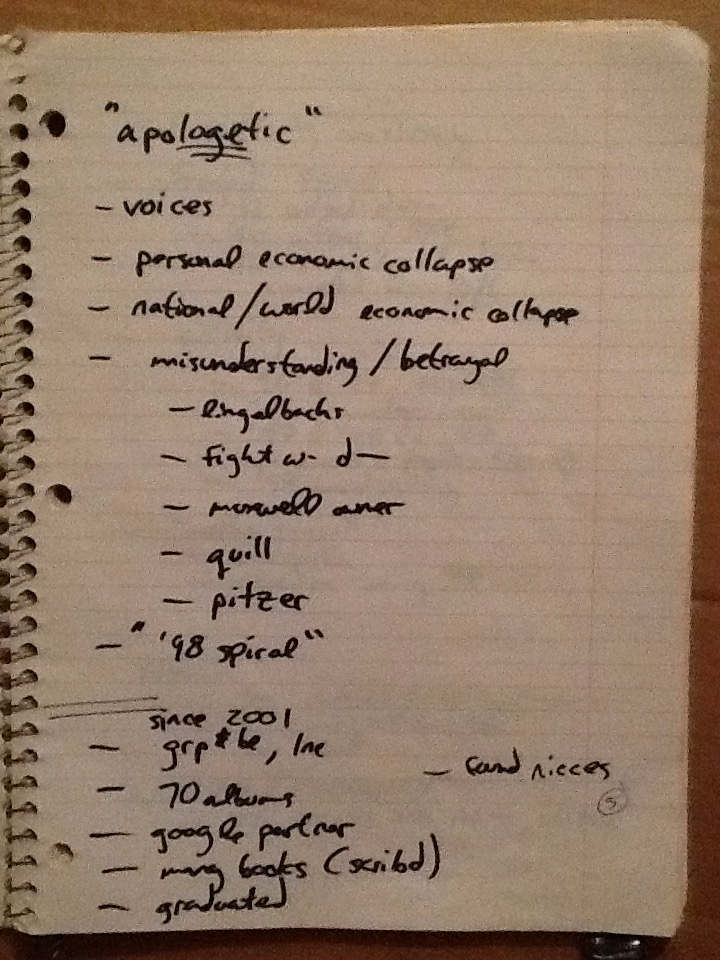 "apologetic"
- voices
- personal economic collapse
- national/world economic collapse
- misunderstanding/betrayal
- lingelbachs
- fight w- d—
- maxwell owner
- quill
- pitzer
- "'98 spiral"
since 2001
- grp*be, Inc
- found nieces
- 70 albums
5
- google partner
- many books (scribd)
- graduated